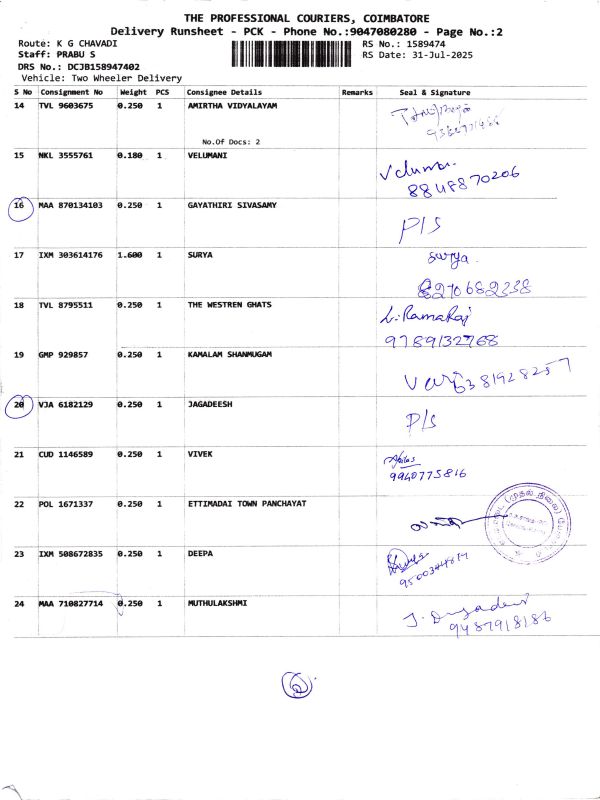 THE PROFESSIONAL COURIERS, COIMBATORE
Delivery Runsheet - PCK - Phone No.:9047080280 - Page No.:2
Route: K G CHAVADI
RS No.: 1589474
Staff: PRABU S
RS Date: 31-Jul-2025
DRS No.: DCJB158947402
Vehicle: Two Wheeler Delivery
S No Consignment No Weight PCS Consignee Details Remarks Seal & Signature
14 TVL 9603675 0.250 1 AMIRTHA VIDYALAYAM
No.Of Docs: 2
15 NKL 3555761 0.180 1 VELUMANI Velumani
8848870206
16 MAA 870134103 0.250 1 GAYATHIRI SIVASAMY P/S
17 IXM 303614176 1.600 1 SURYA Surya
8270682338
18 TVL 8795511 0.250 1 THE WESTREN GHATS L. RamaRaj
9789132768
19 GMP 929857 0.250 1 KAMALAM SHANMUGAM
20 VJA 6182129 0.250 1 JAGADEESH P/S
21 CUD 1146589 0.250 1 VIVEK
9940775816
22 POL 1671337 0.250 1 ETTIMADAI TOWN PANCHAYAT
23 IXM 508672835 0.250 1 DEEPA
24 MAA 710827714 0.250 1 MUTHULAKSHMI
9487918186
2